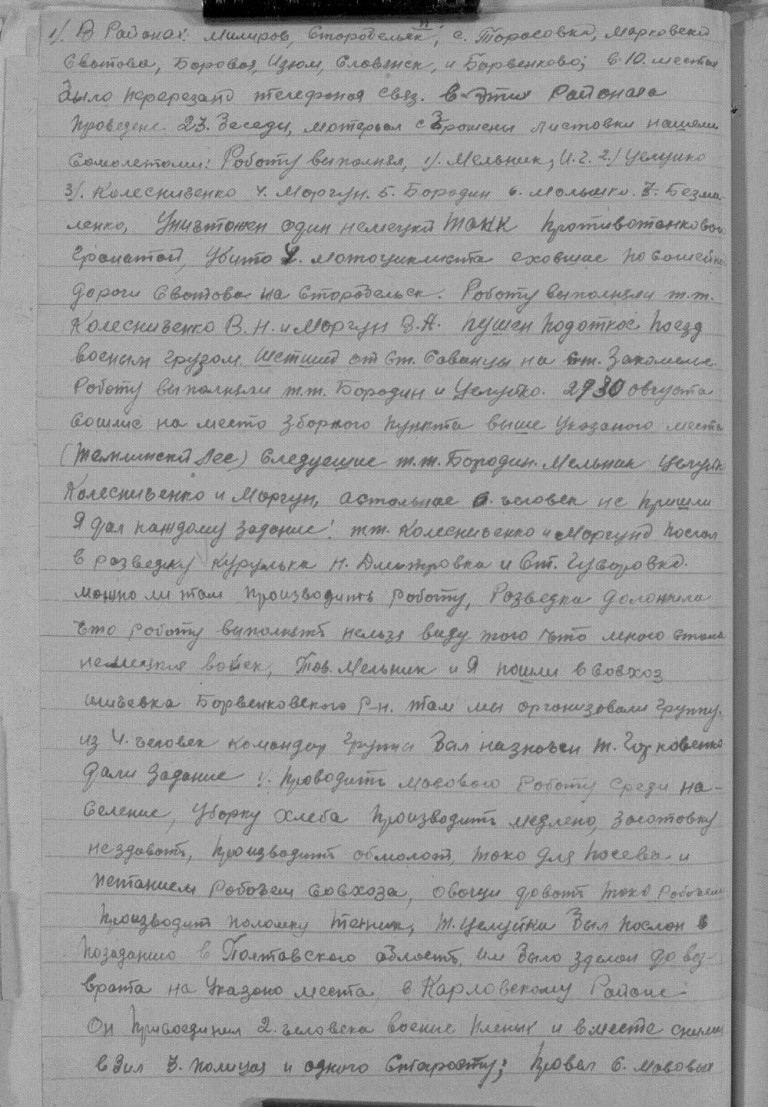 1/. В Районах: Милиров, Старобельск, с. Тарасовка, Марковский
Сватова, Боровая, Изюм, Словянск, и Барвенково; в 10. местах
было перерезано телефоная связ. в этих Районаха
проведене. 23. беседы, матерьял сброшены листовки нашими
самолетами: Роботу выполнял, 1/. Мельник, И.г. 2./ Целуйко
3/. Колесниченко 4. Моргун. 5. Бородин 6. Малышко. 7. Безма-
ленко, Уничтожен один немецкий танк противотанковой
гранатой, Убито 2. мотоциклиста ехавшие по шосейно
дороги Сватова на Старобельск. Роботу выполняли т.т.
Колесниченко В. Н. и Моргун З.А. пущен подоткос поезд
военым грузом. Шетший от ст. Саванцы на ст. Закомельс.
Роботу выполняли т.т. Бородин и Целуйко. 2930 августа
сошлис на место зборного пункта выше указаного места
(Теплинский Лес) Следуещие т.т. Бородин. Мельник Целуйк
Колесниченко и Моргун, астольное 6. человек не пришли
Я дал каждому задание! тт. Колесниченко и Моргуно послал
в разведку Курулька Н. Дмитровка и Ст. Гусаровка.
можно ли там производить роботу, Розведка доложила
что роботу выполнять нельзя виду того что много стоит
немецких войск, Тов. Мельник и Я пошли в совхоз
Барвенковского р-н. там мы организовали группу.
из 4. человек командор группы был назначен т. Горковенко
дали задание 1. проводить масовою роботу среди на-
селение, уборку хлеба производить медлено, заготовку
нездавать, производить обмолот, токо для посева и
петанием робочем совхоза, овощи довать токо робочем
производит поломку техник, т. Целуйка был послон в
позаданию в Полтавского область, им было зделан до воз-
врата на Указано места в Карловскому Районе:
Он присоединил 2. человека военые пленых и вместе сними
взил 3. полицая и одного Старосту; провел 6. масовых